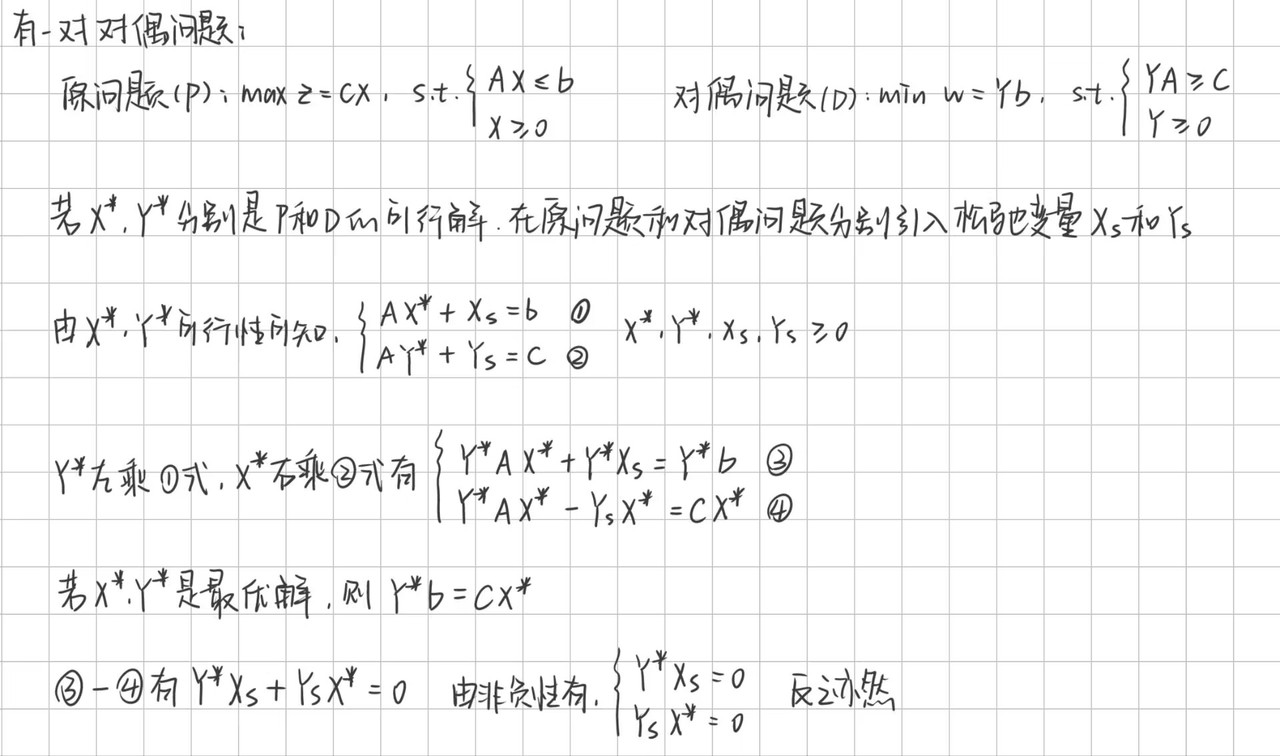 有一对对偶问题:
原问题(P): max z = CX, s.t. { AX ≤ b X ≥ 0 对偶问题(D): min w = Yb, s.t. { YA ≥ C Y ≥ 0
若X*, Y*分别是P和D的可行解.在原问题和对偶问题分别引入松弛变量Xs和Ys
由X*, Y*可行性可知, { AX* + Xs = b ① AY* + Ys = C ② X*, Y*, Xs, Ys ≥ 0
Y*左乘①式, X*右乘②式有 { Y*AX* + Y*Xs = Y*b ③ Y*AX* - YsX* = CX* ④
若X*, Y*是最优解, 则 Y*b = CX*
③-④有 Y*Xs + YsX* = 0 由非负性有, { Y*Xs = 0 YsX* = 0 反之亦然